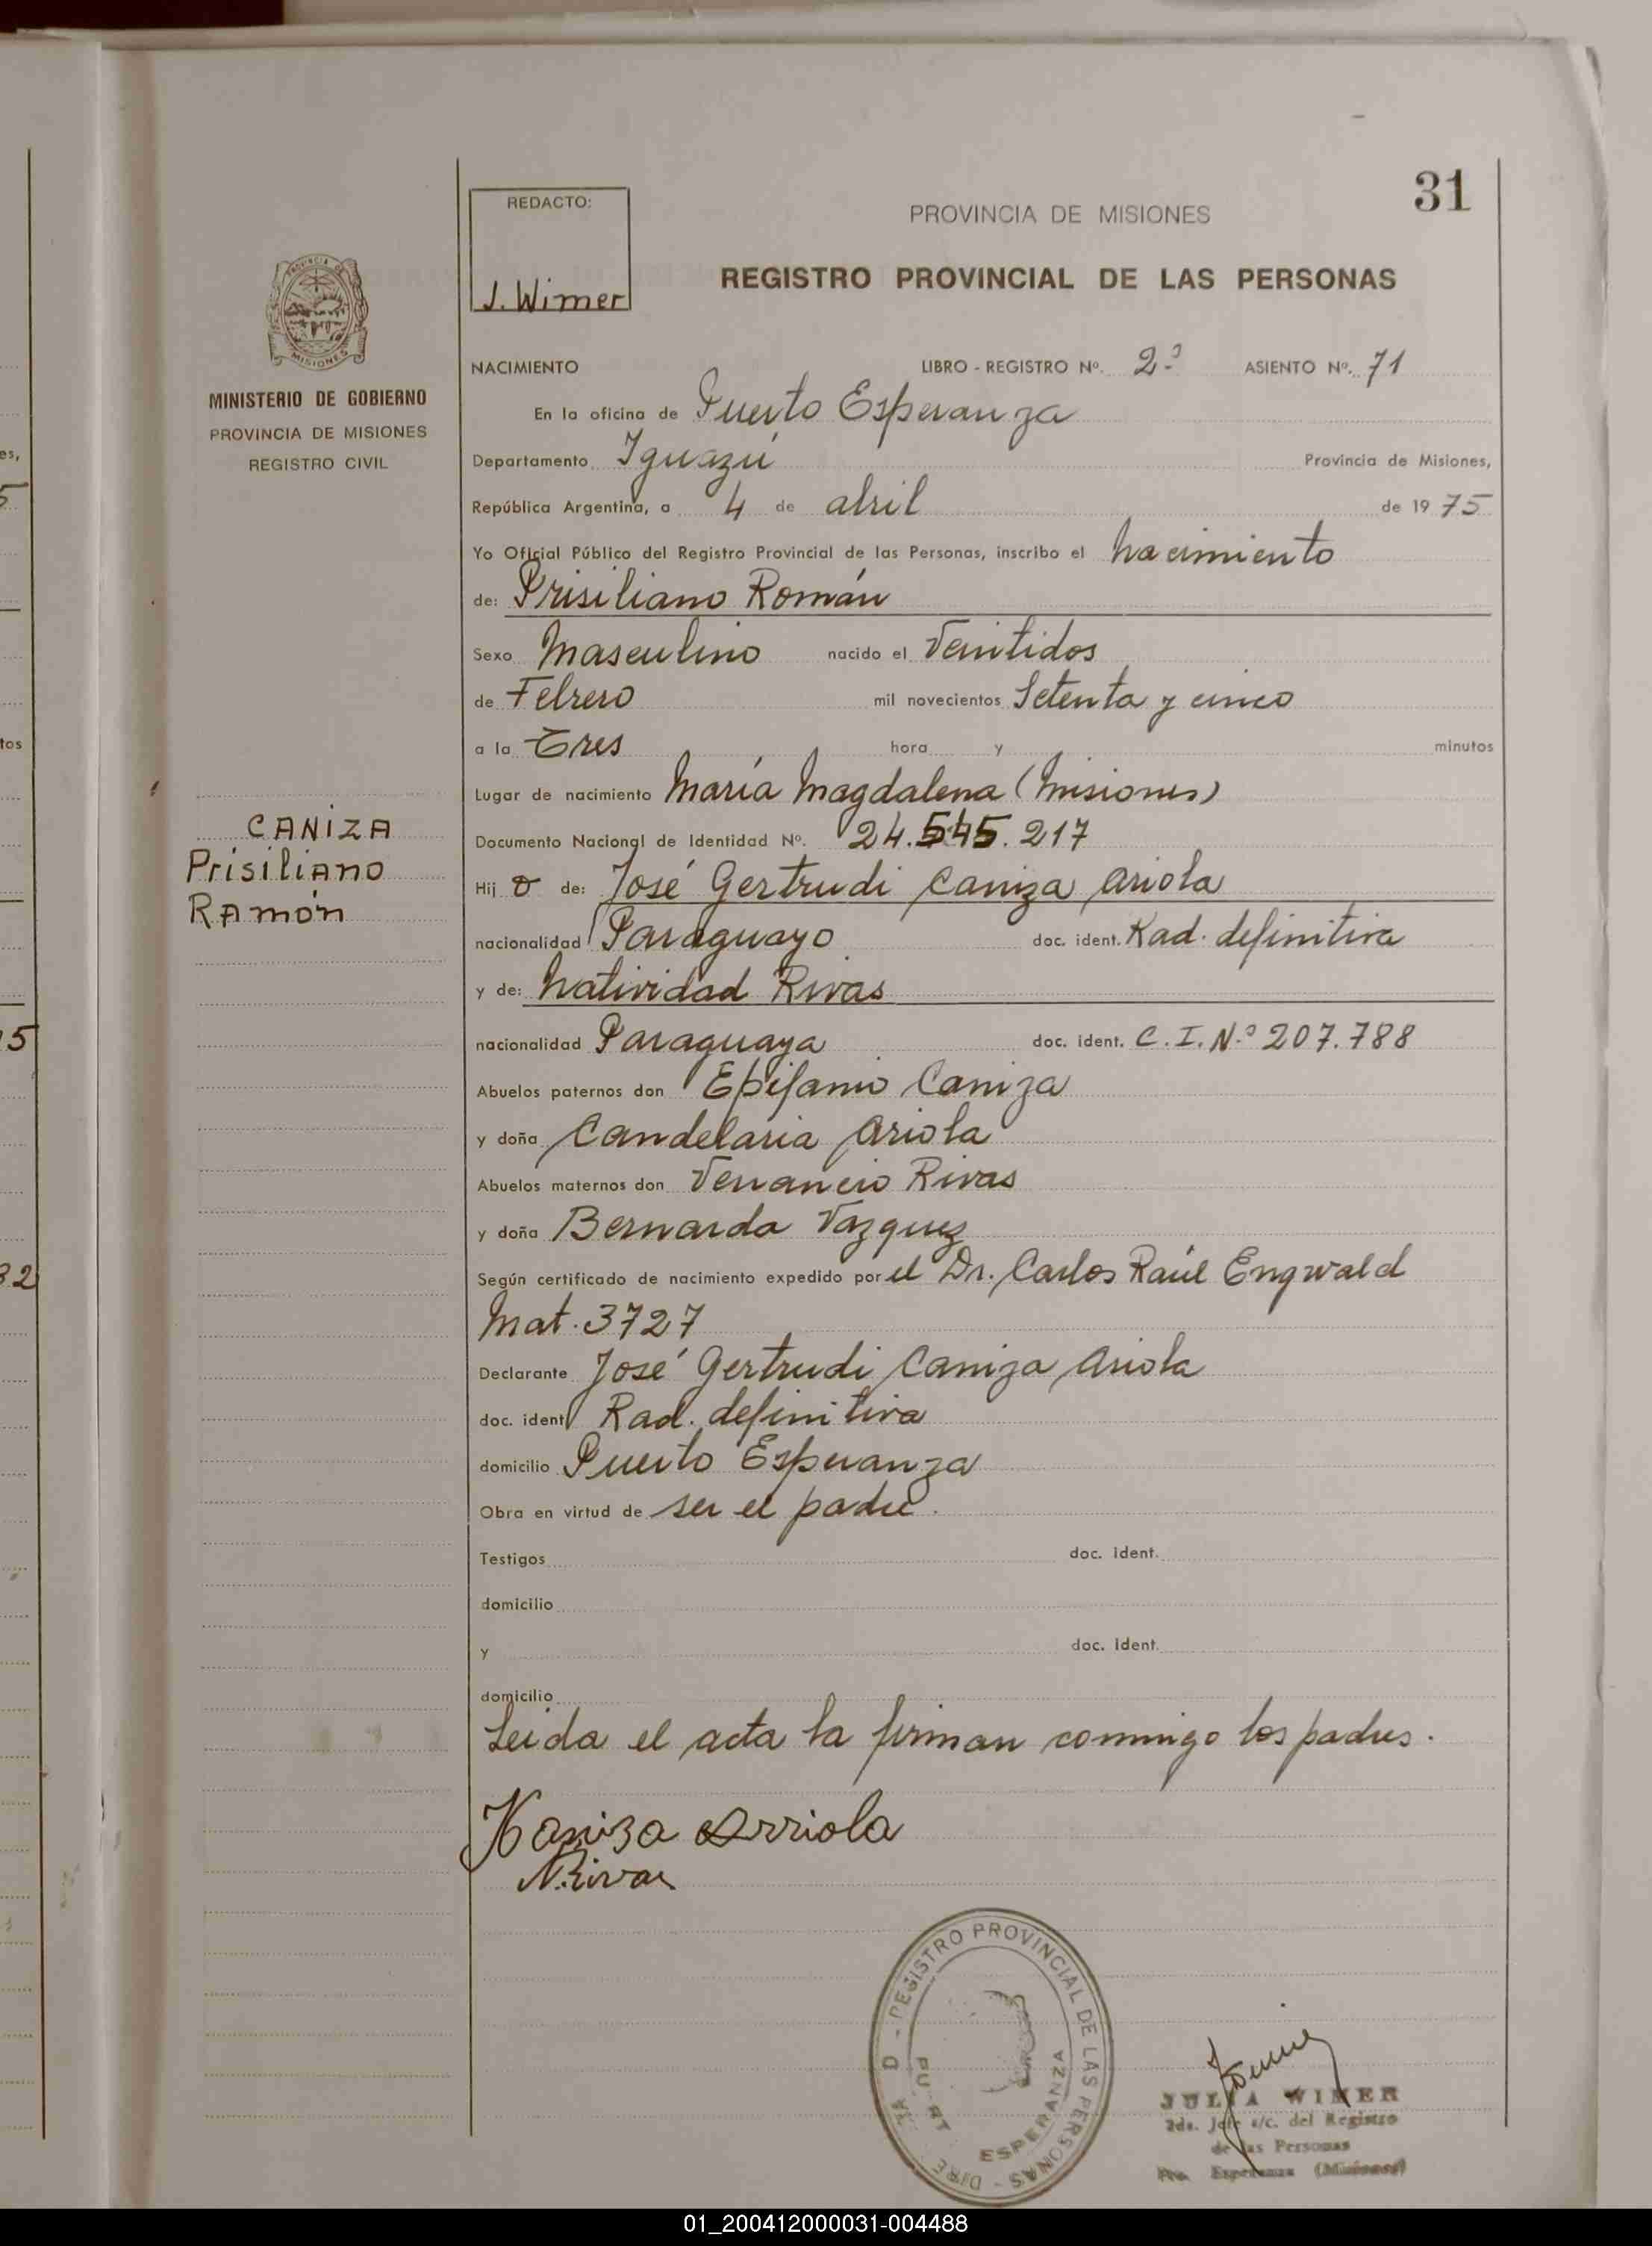 31
REDACTO:
J. Wimer
PROVINCIA DE MISIONES
REGISTRO PROVINCIAL DE LAS PERSONAS
PROVINCIA DE
MISIONES
MINISTERIO DE GOBIERNO
PROVINCIA DE MISIONES
REGISTRO CIVIL
CANIZA
Prisiliano
Ramón
NACIMIENTO LIBRO - REGISTRO Nº. 2º ASIENTO Nº. 71
En la oficina de Puerto Esperanza
Departamento Iguazú Provincia de Misiones,
República Argentina, a 4 de abril de 1975
Yo Oficial Público del Registro Provincial de las Personas, inscribo el nacimiento
de: Prisiliano Román
Sexo Masculino nacido el Veintidos
de Febrero mil novecientos Setenta y cinco
a la Tres hora y minutos
Lugar de nacimiento María Magdalena (Misiones)
Documento Nacional de Identidad Nº. 24.545.217
Hijo de: José Gertrudi Caniza Ariola
nacionalidad Paraguayo doc. ident. Rad. definitiva
y de: Natividad Rivas
nacionalidad Paraguaya doc. ident. C.I. Nº 207.788
Abuelos paternos don Epifanio Caniza
y doña Candelaria Ariola
Abuelos maternos don Venancio Rivas
y doña Bernarda Vazquez
Según certificado de nacimiento expedido por el Dr. Carlos Raúl Engwald
Mat. 3727
Declarante José Gertrudi Caniza Ariola
doc. ident Rad. definitiva
domicilio Puerto Esperanza
Obra en virtud de ser el padre.
Testigos doc. ident.
domicilio
y doc. ident.
domicilio
Leida el acta la firman conmigo los padres.
Kaniza Arriola
N. Rivas
REGISTRO PROVINCIAL DE LAS PERSONAS - DIRE
ESPERANZA
JULIA WIMER
2da. Jefe e/c. del Registro
de las Personas
Pto. Esperanza (Misiones)
es,
5
tos
5
32
01_200412000031-004488